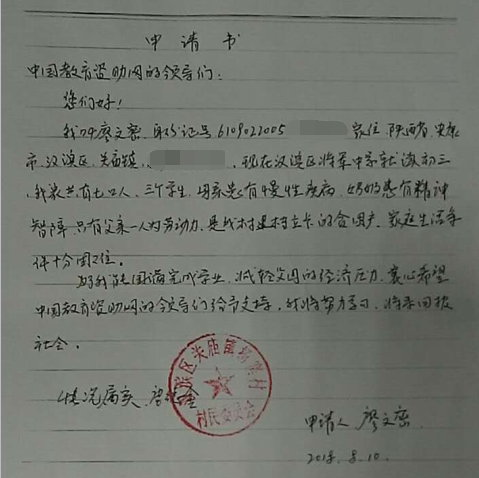 申请书
中国教育资助网的领导们:
您们好!
我叫廖文密,身份证号6109022005 家住陕西省安康
市,汉滨区,关庙镇, ,现在汉滨区将军中学就读初三,
我家共有七口人,三个学生,母亲患有慢性疾病,奶奶患有精神
智障,只有父亲一人为劳动力,是我村建档立卡的贫困户,家庭生活条
件十分困难。
为我能圆满完成学业,减轻父母的经济压力,衷心希望
中国教育资助网的领导们给予支持,我将努力学习,将来回报
社会。
滨区关庙镇 村
村民委员会
情况属实
申请人 廖文密
2018.8.10.